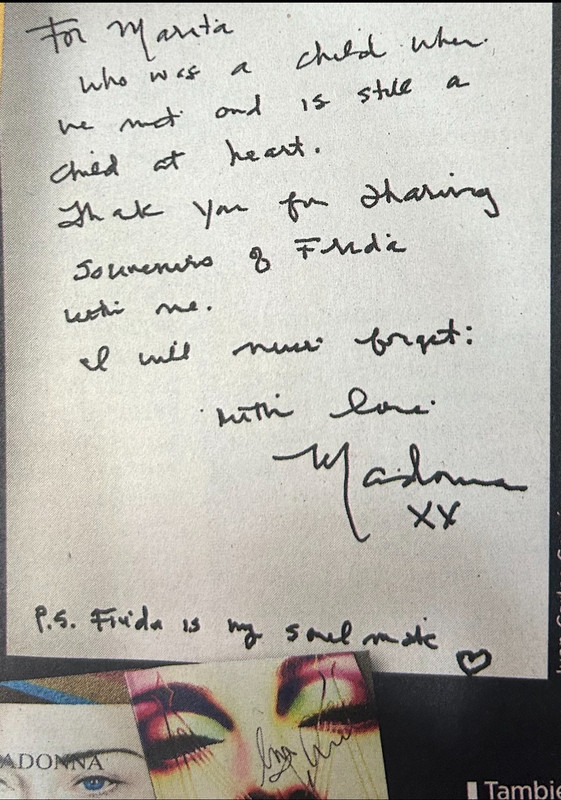 For Marita
who was a child when
we met and is still a
child at heart.
Thank you for sharing
souvenirs of Frida
with me.
I will never forget:
with love
Madonna
XX
P.S. Frida is my soul mate ♡
ADONNA
Tambié